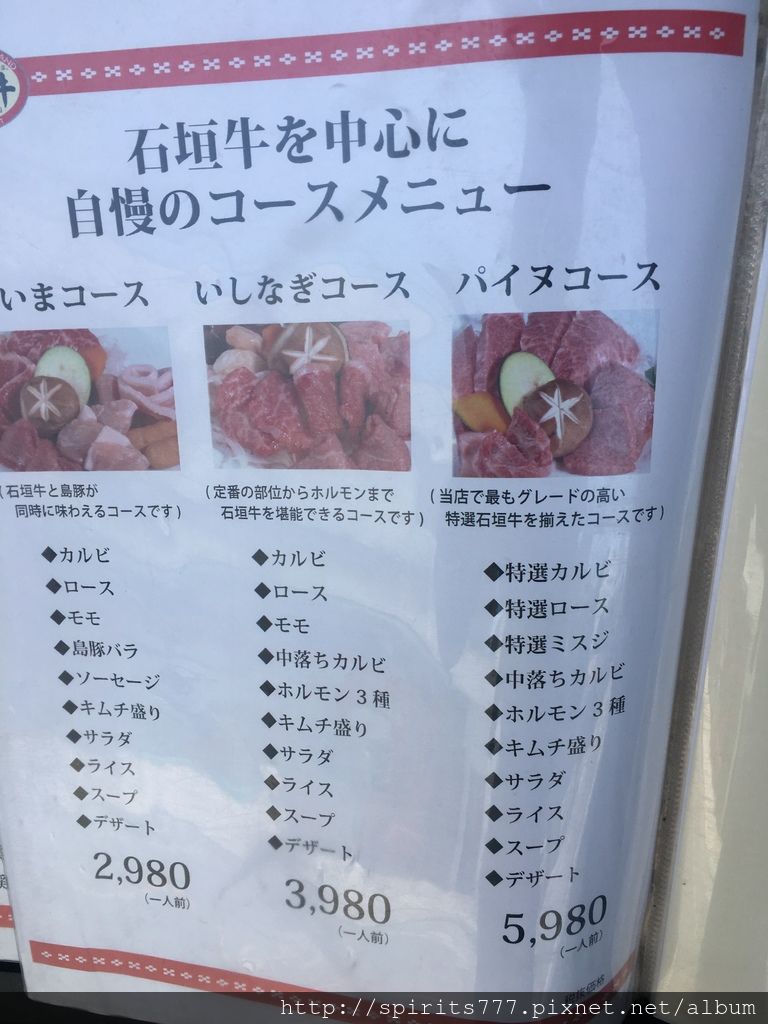 石垣牛を中心に
自慢のコースメニュー
いまコース
(石垣牛と島豚が
同時に味わえるコースです)
◆カルビ
◆ロース
◆モモ
◆島豚バラ
◆ソーセージ
◆キムチ盛り
◆サラダ
◆ライス
◆スープ
◆デザート
2,980
(一人前)
いしなぎコース
(定番の部位からホルモンまで
石垣牛を堪能できるコースです)
◆カルビ
◆ロース
◆モモ
◆中落ちカルビ
◆ホルモン3種
◆キムチ盛り
◆サラダ
◆ライス
◆スープ
◆デザート
3,980
(一人前)
パイヌコース
(当店で最もグレードの高い
特選石垣牛を揃えたコースです)
◆特選カルビ
◆特選ロース
◆特選ミスジ
◆中落ちカルビ
◆ホルモン3種
◆キムチ盛り
◆サラダ
◆ライス
◆スープ
◆デザート
5,980
(一人前)
http://spirits777.pixnet.net/album